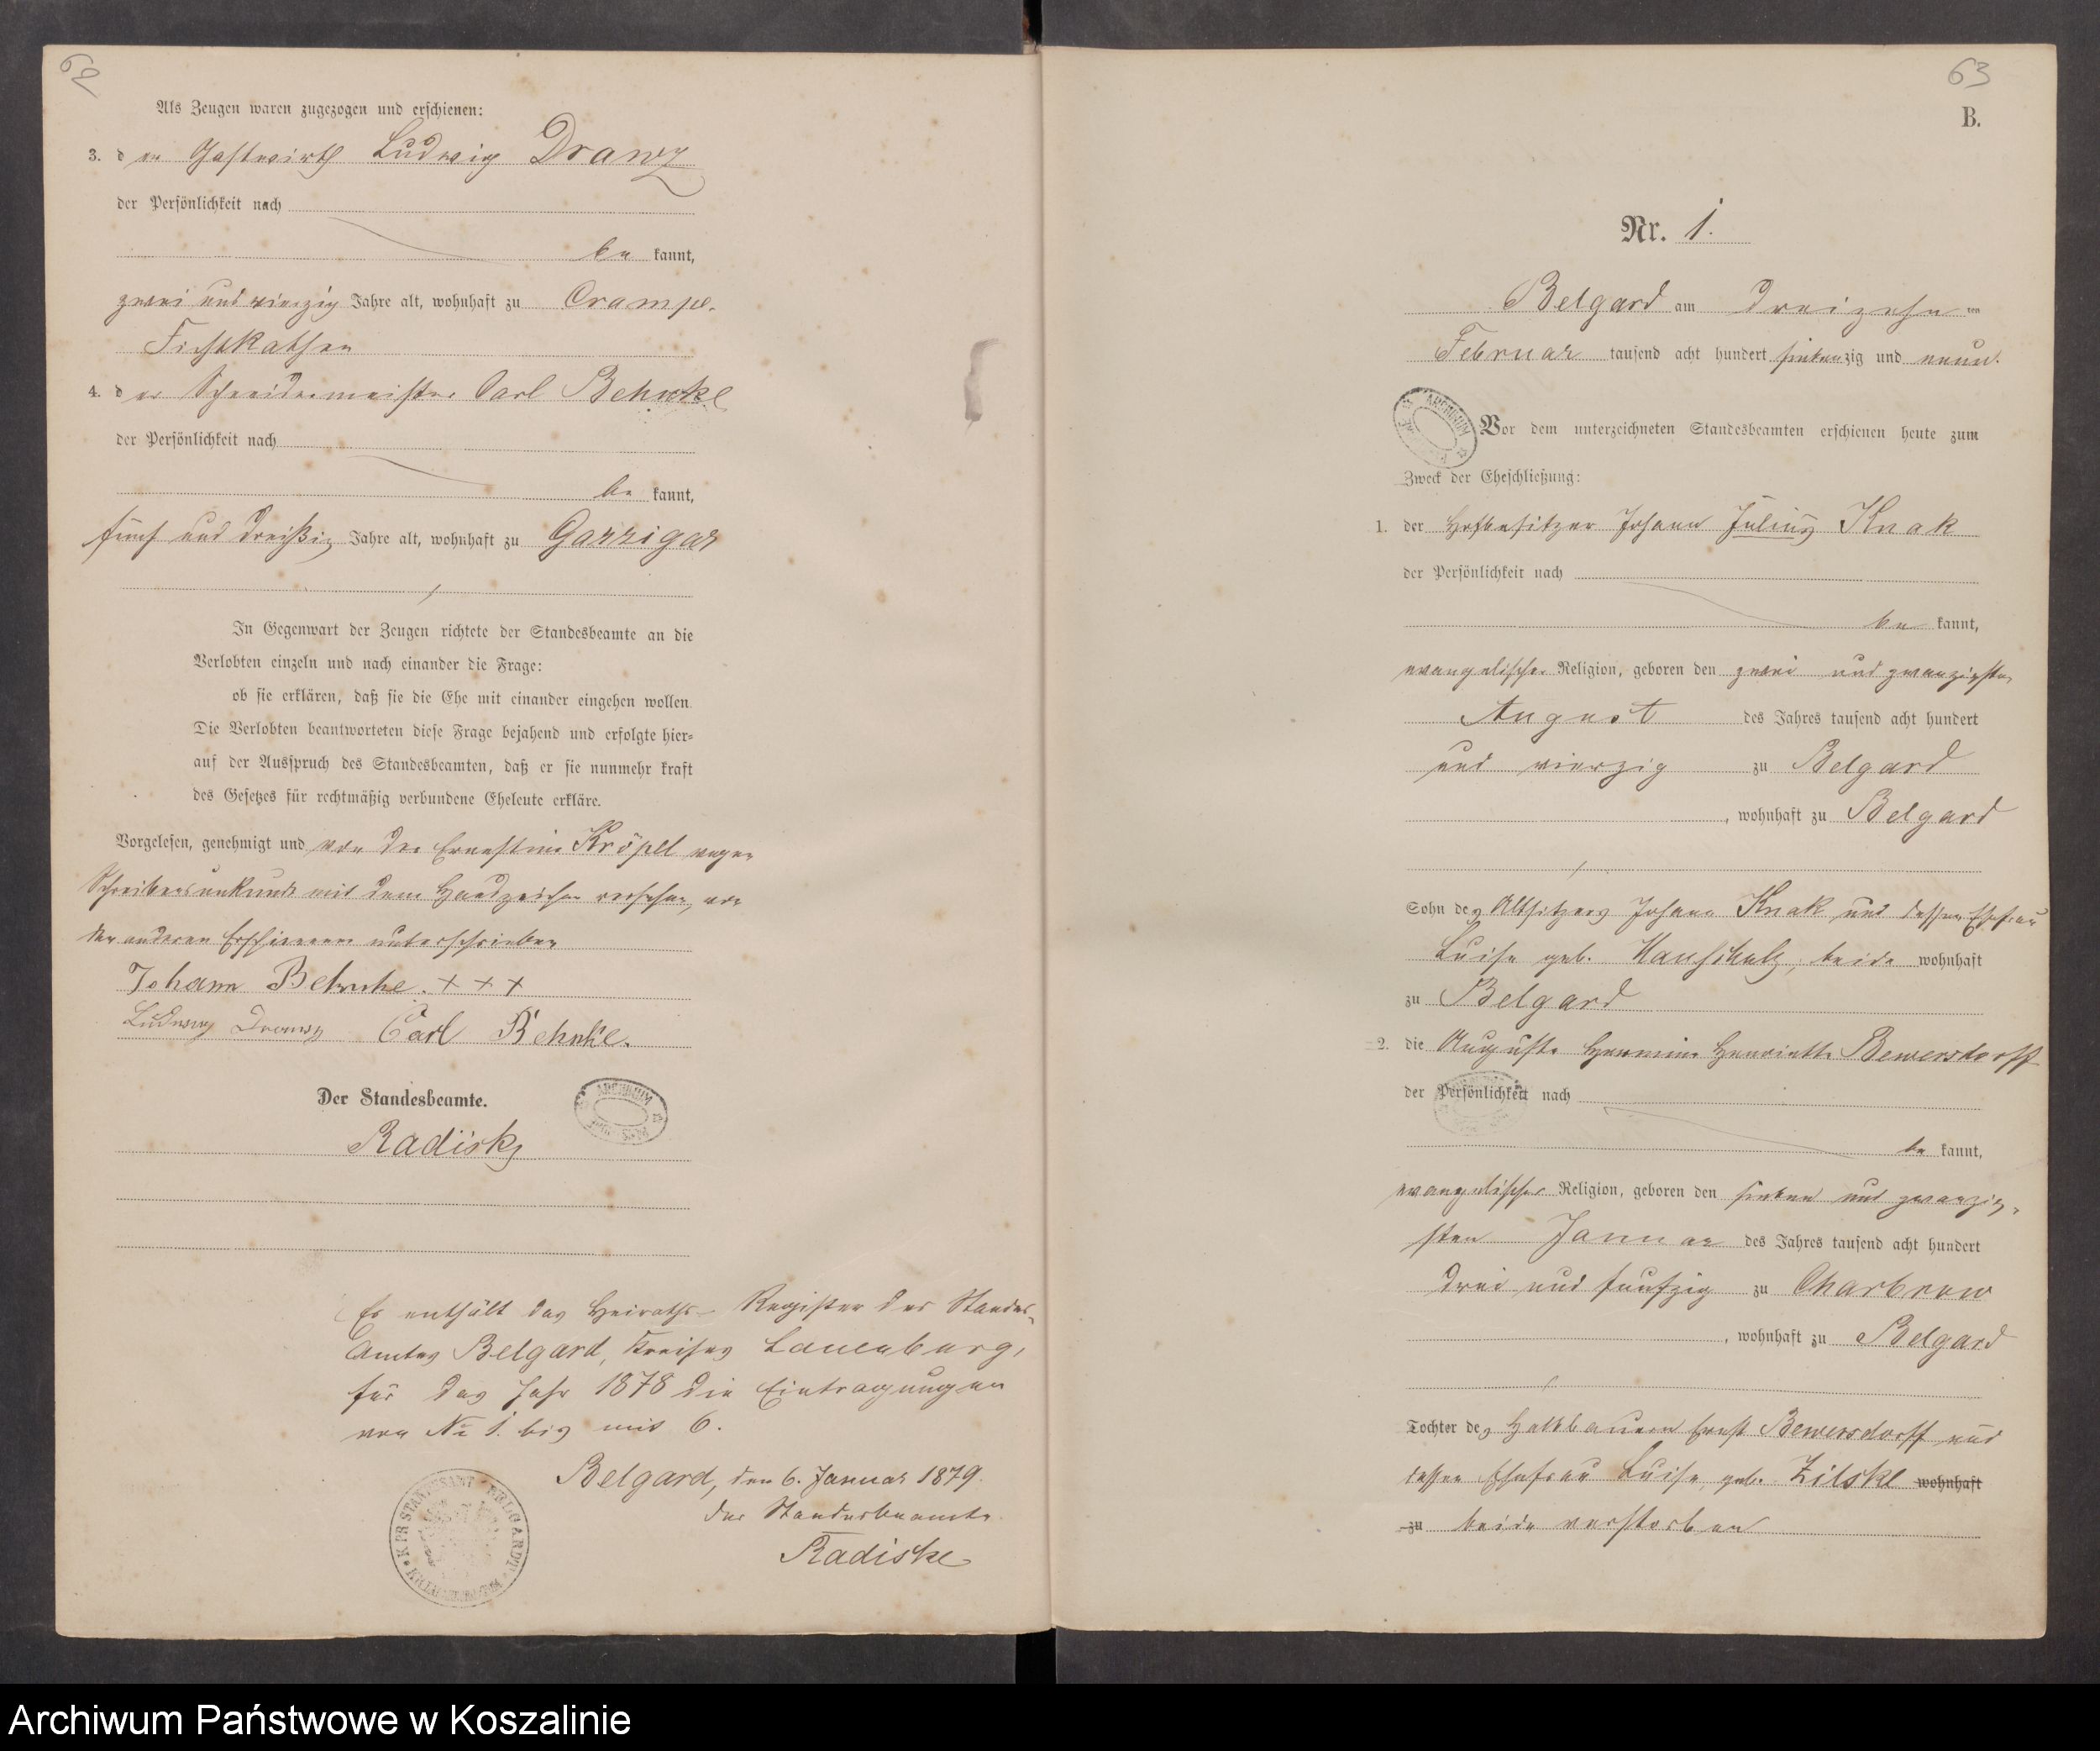 62
Als Zeugen waren zugezogen und erschienen:
3. der Gastwirth Ludwig Drawz
der Persönlichkeit nach
be kannt,
zwei und vierzig Jahre alt, wohnhaft zu Crampe-
Fichtkathen
4. der Schneidermeister Carl Behnke
der Persönlichkeit nach
be kannt,
fünf und dreißig Jahre alt, wohnhaft zu Garzigar
In Gegenwart der Zeugen richtete der Standesbeamte an die
Verlobten einzeln und nach einander die Frage:
ob sie erklären, daß sie die Ehe mit einander eingehen wollen.
Die Verlobten beantworteten diese Frage bejahend und erfolgte hier-
auf der Ausspruch des Standesbeamten, daß er sie nunmehr kraft
des Gesetzes für rechtmäßig verbundene Eheleute erkläre.
Vorgelesen, genehmigt und von der Ernestine Kröpel wegen
Schreibensunkunde mit dem Handzeichen versehen, von
den anderen Erschienenen unterschrieben
Johann Behnke. + + +
Ludwig Drawz Carl Behnke.
Der Standesbeamte.
ARCHIWUM
Radiske
Es enthält das Heiraths-Register des Standes-
Amtes Belgard, Kreises Lauenburg,
für das Jahr 1878 die Eintragungen
von No 1. bis mit 6.
Belgard, den 6. Januar 1879.
Der Standesbeamte
Radiske
K. PR STANDESAMT BELGARD
63
B.
Nr. 1.
Belgard am dreizehn ten
Februar tausend acht hundert siebenzig und neun.
ARCHIWUM
Vor dem unterzeichneten Standesbeamten erschienen heute zum
Zweck der Eheschließung:
1. der Hofbesitzer Johann Julius Knak
der Persönlichkeit nach
be kannt,
evangelischer Religion, geboren den zwei und zwanzigsten
August des Jahres tausend acht hundert
und vierzig zu Belgard
, wohnhaft zu Belgard
Sohn des Altsitzers Johann Knak und dessen Ehefrau
Luise geb. beide wohnhaft
zu Belgard
2. die Auguste Hermine Henriette Bewersdorff
der Persönlichkeit nach
be kannt,
evangelischer Religion, geboren den sieben und zwanzig-
sten Januar des Jahres tausend acht hundert
drei und fünfzig zu Charbrow
, wohnhaft zu Belgard
Tochter des Halbbauern Ernst Bewersdorff und
dessen Ehefrau Luise, geb. Zilske wohnhaft
zu beide verstorben
Archiwum Państwowe w Koszalinie